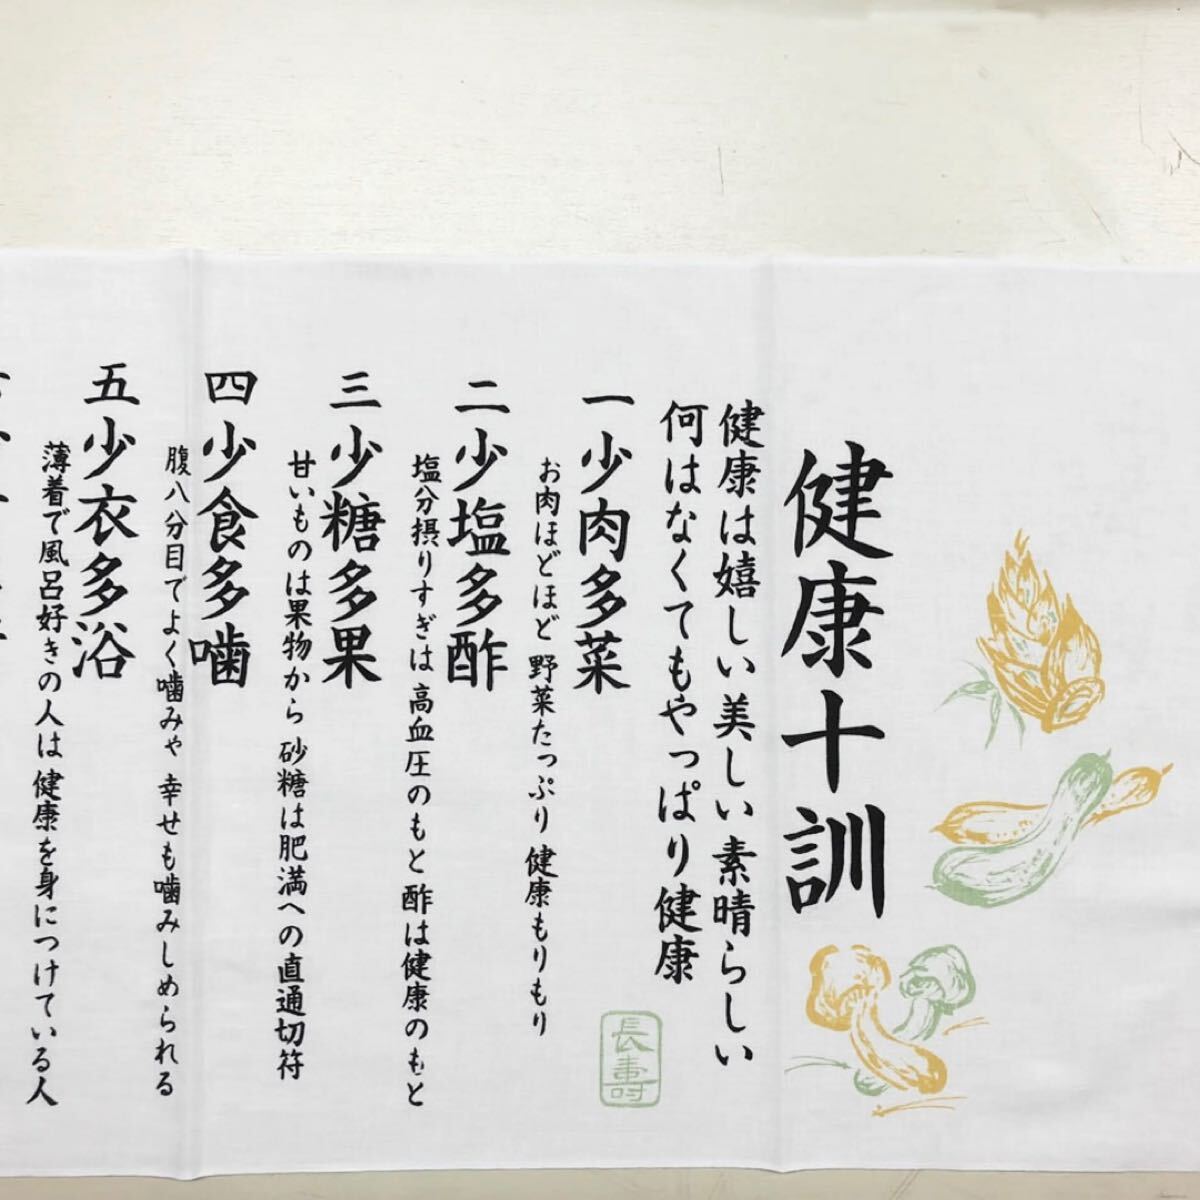 健康十訓
健康は嬉しい美しい素晴らしい
何はなくてもやっぱり健康
長寿
一少肉多菜
お肉ほどほど 野菜たっぷり 健康もりもり
二少塩多酢
塩分摂りすぎは 高血圧のもと 酢は健康のもと
三少糖多果
甘いものは果物から 砂糖は肥満への直通切符
四少食多噛
腹八分目でよく噛みゃ 幸せも噛みしめられる
五少衣多浴
薄着で風呂好きの人は 健康を身につけている人